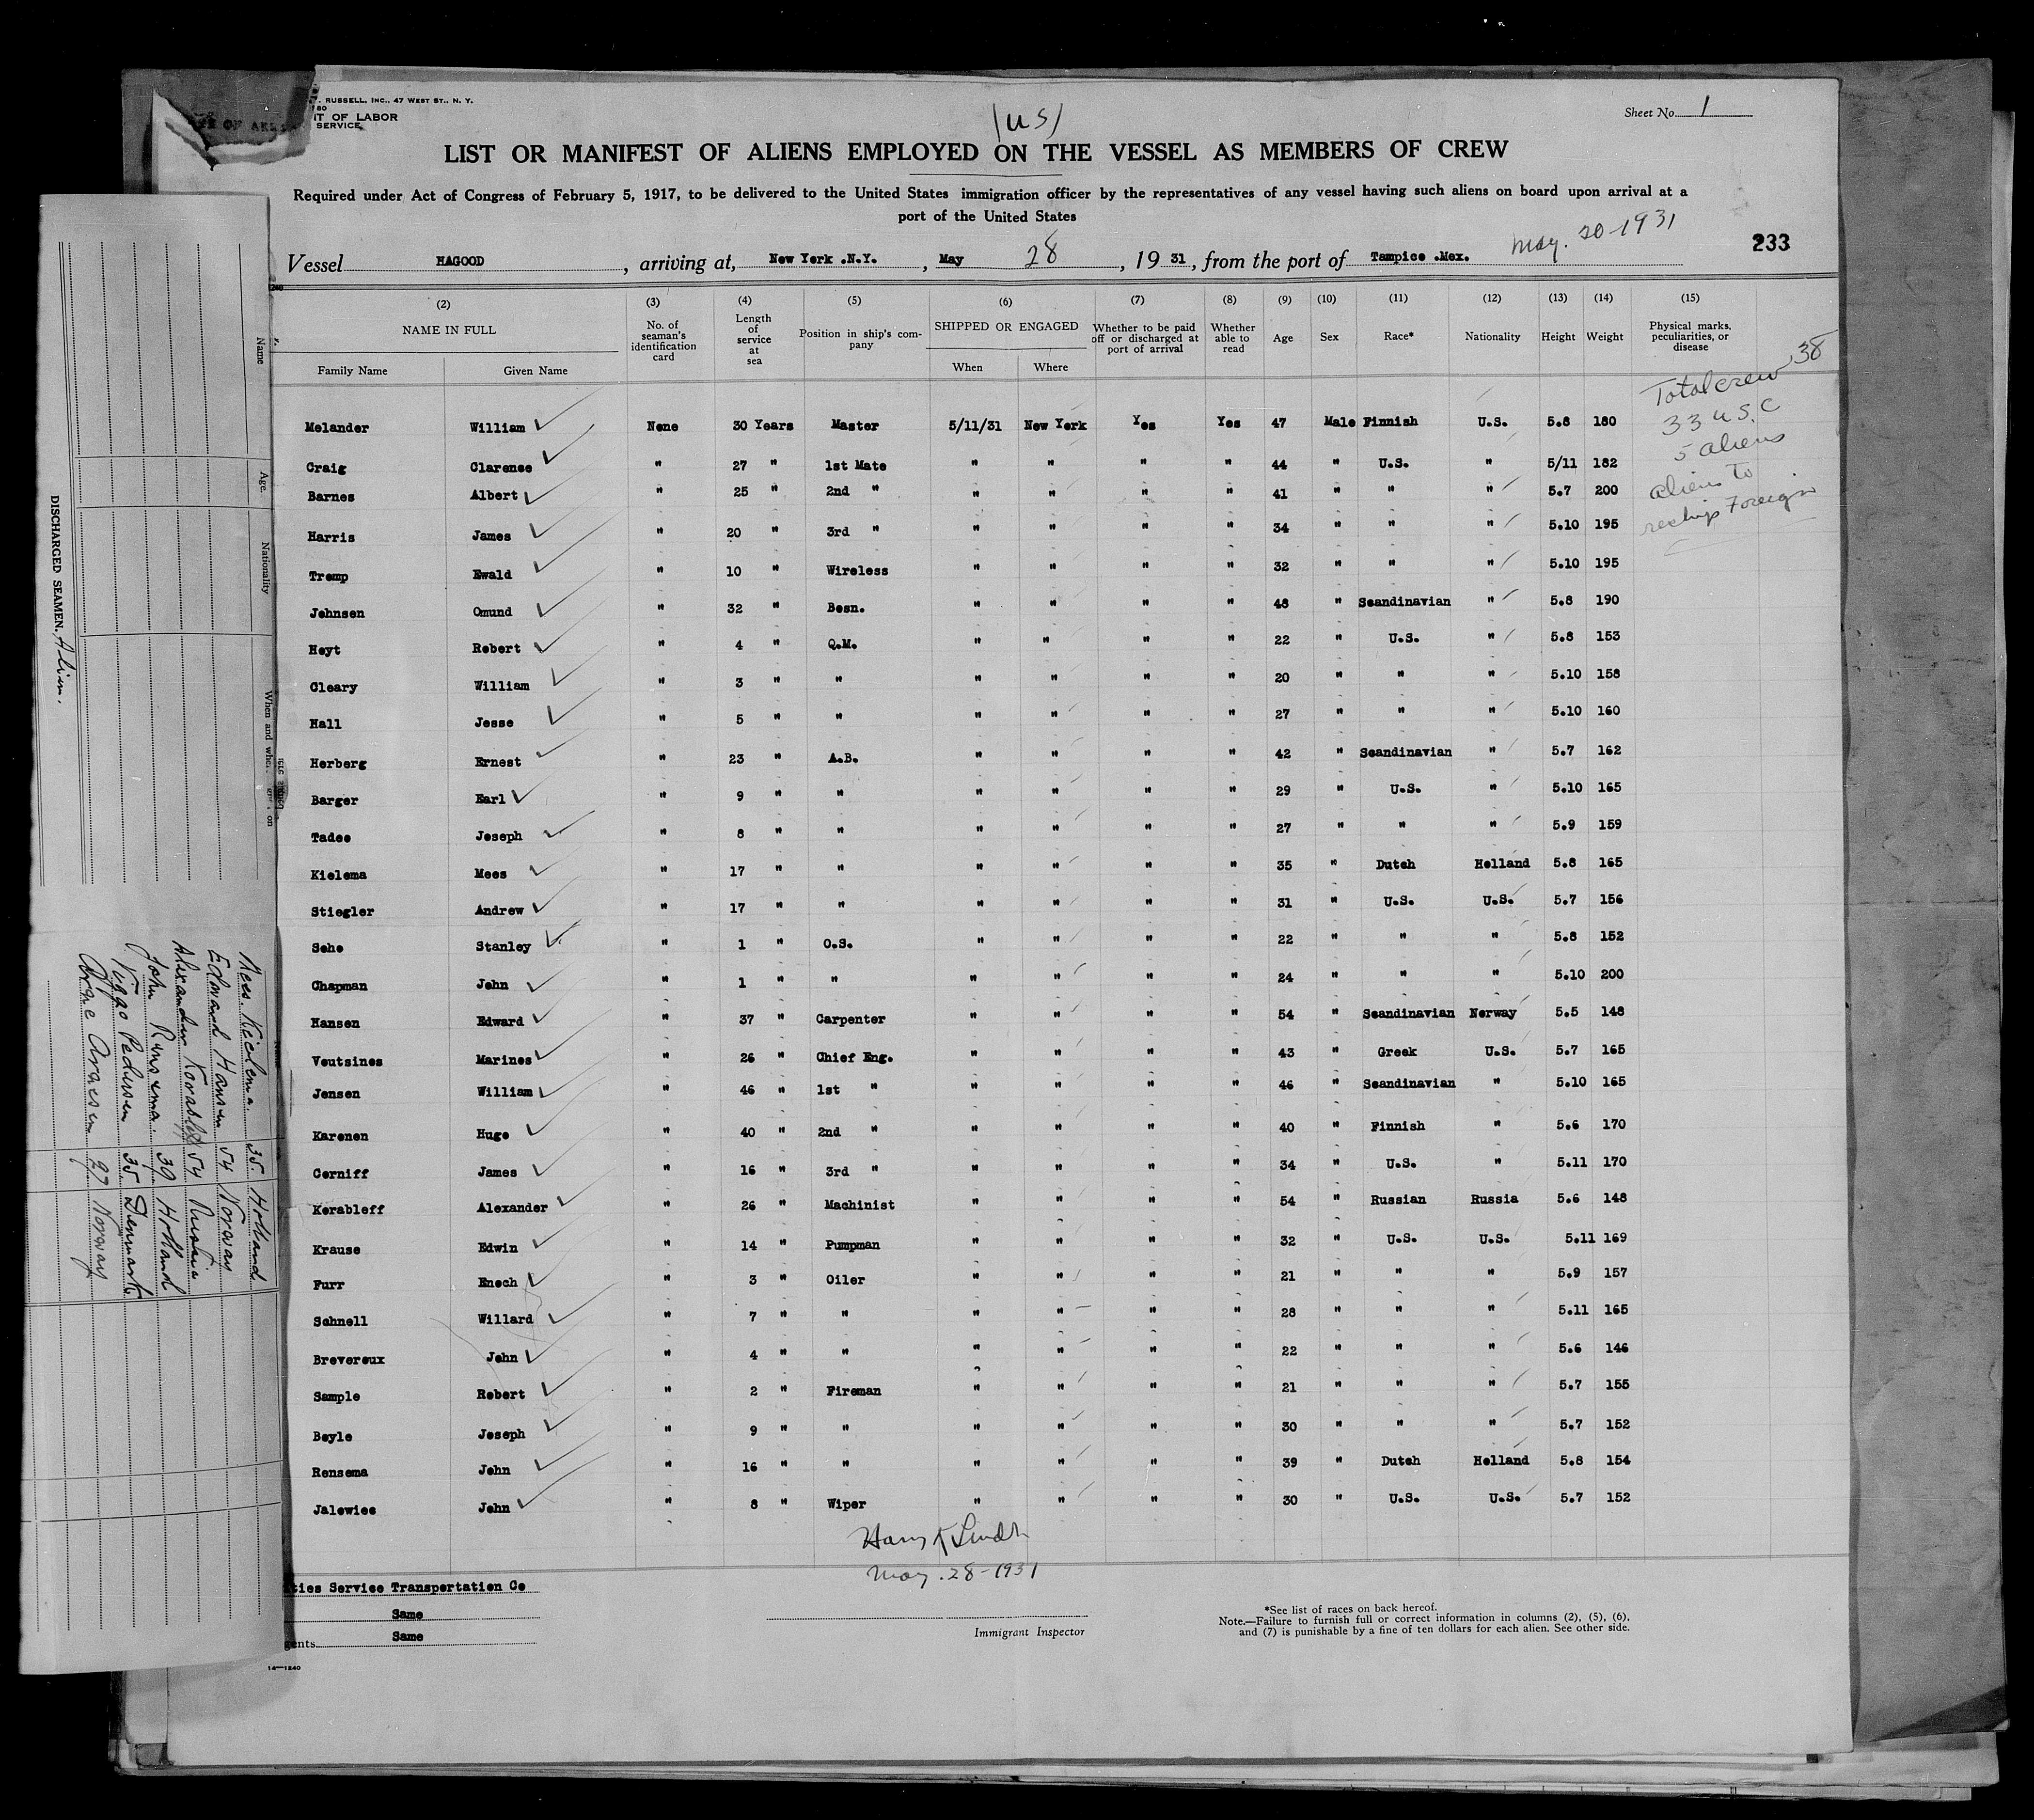 . RUSSELL, INC., 47 WEST ST., N. Y.
IT OF LABOR
SERVICE
(U S)
Sheet No. 1
LIST OR MANIFEST OF ALIENS EMPLOYED ON THE VESSEL AS MEMBERS OF CREW
Required under Act of Congress of February 5, 1917, to be delivered to the United States immigration officer by the representatives of any vessel having such aliens on board upon arrival at a
port of the United States
May. 20-1931
233
Vessel HAGOOD, arriving at, New York .N.Y., May 28, 1931, from the port of Tampico .Mex.
(2) (3) (4) (5) (6) (7) (8) (9) (10) (11) (12) (13) (14) (15)
NAME IN FULL No. of seaman's identification card Length of service at sea Position in ship's company SHIPPED OR ENGAGED Whether to be paid off or discharged at port of arrival Whether able to read Age Sex Race* Nationality Height Weight Physical marks, peculiarities, or disease
Family Name Given Name When Where
Total crew 38
33 U.S.C
5 aliens
aliens to
reship Foreign
Melander William None 30 Years Master 5/11/31 New York Yes Yes 47 Male Finnish U.S. 5.8 180
Craig Clarence " 27 " 1st Mate " " " " 44 " U.S. " 5/11 182
Barnes Albert " 25 " 2nd " " " " " 41 " " " 5.7 200
Harris James " 20 " 3rd " " " " " 34 " " " 5.10 195
Tremp Ewald " 10 " Wireless " " " " 32 " " " 5.10 195
Johnsen Omund " 32 " Bosn. " " " " 48 " Scandinavian " 5.8 190
Hoyt Robert " 4 " Q.M. " " " " 22 " U.S. " 5.8 153
Cleary William " 3 " " " " " " 20 " " " 5.10 158
Hall Jesse " 5 " " " " " " 27 " " " 5.10 160
Herberg Ernest " 23 " A.B. " " " " 42 " Scandinavian " 5.7 162
Barger Earl " 9 " " " " " " 29 " U.S. " 5.10 165
Tadee Joseph " 8 " " " " " " 27 " " " 5.9 159
Kielema Mees " 17 " " " " " " 35 " Dutch Holland 5.8 165
Stiegler Andrew " 17 " " " " " " 31 " U.S. U.S. 5.7 156
Soho Stanley " 1 " O.S. " " " " 22 " " " 5.8 152
Chapman John " 1 " " " " " " 24 " " " 5.10 200
Hansen Edward " 37 " Carpenter " " " " 54 " Scandinavian Norway 5.5 148
Voutsines Marinos " 26 " Chief Eng. " " " " 43 " Greek U.S. 5.7 165
Jensen William " 46 " 1st " " " " " 46 " Scandinavian " 5.10 165
Karonen Hugo " 40 " 2nd " " " " " 40 " Finnish " 5.6 170
Corniff James " 16 " 3rd " " " " " 34 " U.S. " 5.11 170
Korableff Alexander " 26 " Machinist " " " " 54 " Russian Russia 5.6 148
Krause Edwin " 14 " Pumpman " " " " 32 " U.S. U.S. 5.11 169
Furr Enoch " 3 " Oiler " " " " 21 " " " 5.9 157
Schnell Willard " 7 " " " " " " 28 " " " 5.11 165
Brevereux John " 4 " " " " " " 22 " " " 5.6 146
Sample Robert " 2 " Fireman " " " " 21 " " " 5.7 155
Boyle Joseph " 9 " " " " " " 30 " " " 5.7 152
Rensema John " 16 " " " " " " 39 " Dutch Holland 5.8 154
Jalowiec John " 8 " Wiper " " " " 30 " U.S. U.S. 5.7 152
May. 28-1931
ities Service Transportation Co
Same
gents Same
Immigrant Inspector
*See list of races on back hereof.
Note.—Failure to furnish full or correct information in columns (2), (5), (6),
and (7) is punishable by a fine of ten dollars for each alien. See other side.
14—1240
DISCHARGED SEAMEN. Alien.
Name Age. Nationality When and
Mees. Kielema. 35. Holland
Edward Hansen 54 Norway
Alexander Korableff 54 Russia
John Rensema. 39 Holland
Viggo Pedersen 35. Denmark
27 Norway